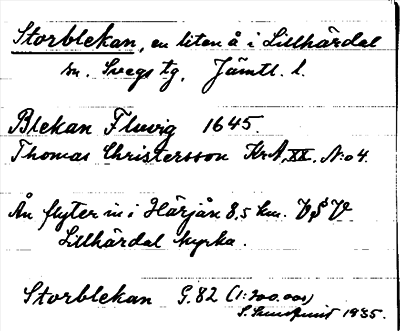 Storblekan, en liten å i Lillhärdal
sn. Svegs tg. Jämtl. l.
Blekan Fluvig 1645.
Thomas Christersson KrA, XX, N:o 4.
Ån flyter in i Härjån 8,5 km. V§V
Lillhärdal kyrka.
Storblekan G.82 (1:200.000)
S. Lundquist 1935.